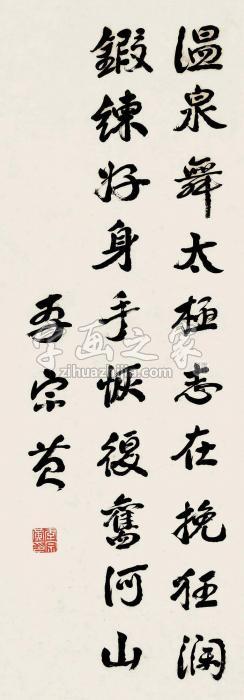 温泉舞太極志在挽狂瀾
鍛練好身手恢復舊河山
李宗黄
字画之家
zihuazhijia.com